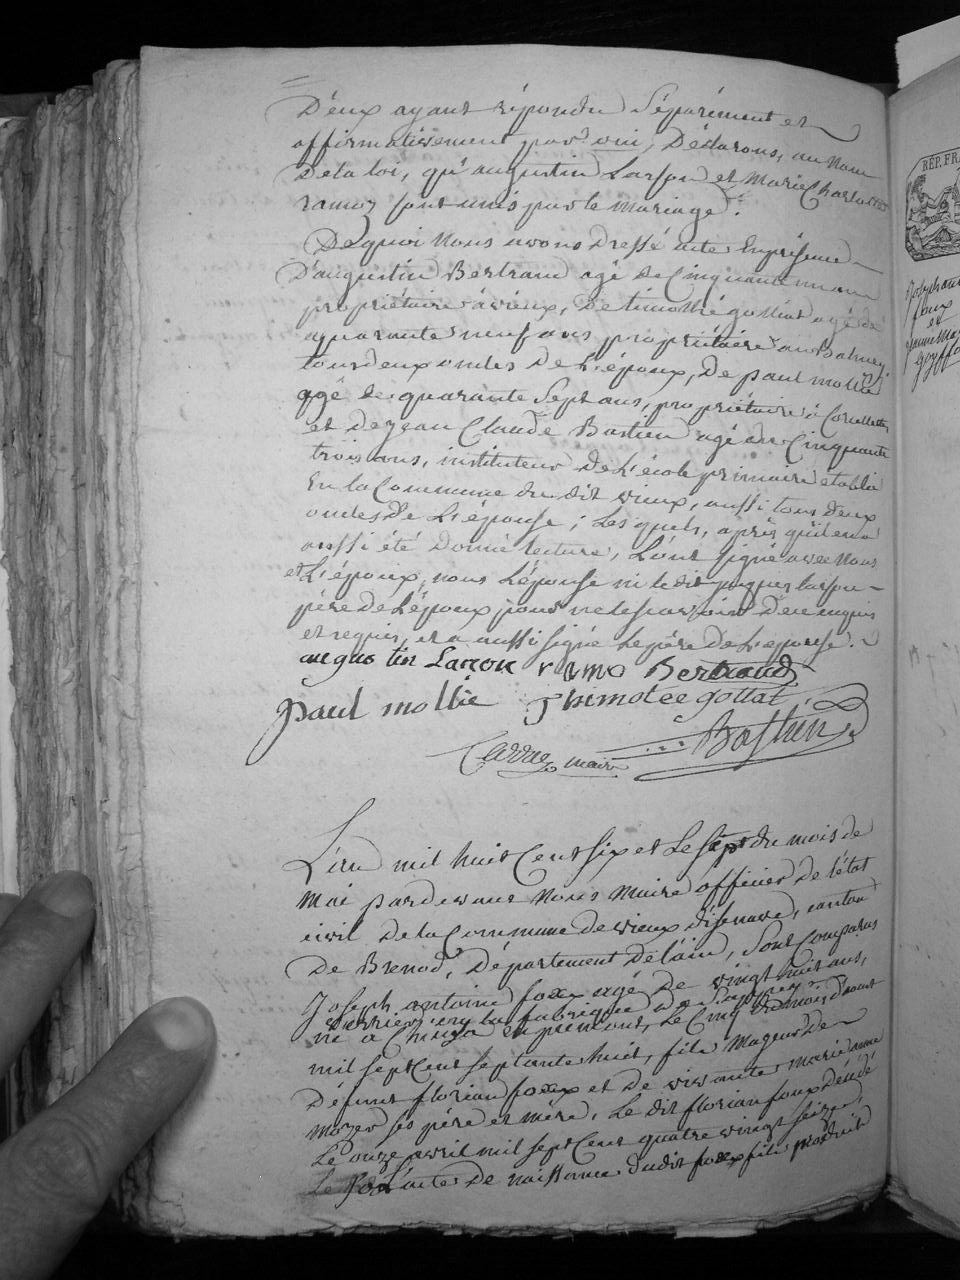 D'eux ayant répondu Séparément et
affirmativement par oui, Déclarons, au Nom
De la loi, qu'augustin Larson et Marie Charlotte
ramoz sont unis par le mariage.
De quoi Nous avons Dressé acte En présence
D'augustin Bertrand agé de Cinquante un ans
propriétaire à vieux, De timothé gottat agé de
quarante neuf ans propriétaire au Balmey
tous deux oncles De L'époux, De paul mollie
agé de quarante Sept ans, propriétaire à Corcellette,
et De jean Claude Bastien agé de Cinquante
trois ans, instituteur De L'école primaire établie
En la Commune du dit vieux, aussi tous deux
oncles De L'épouse; Les quels, après qu'il en a
aussi été Donné lecture, L'ont signé avec Nous
et L'époux, nous L'épouse ni le dit jacques larson
père De L'époux pour ne le sçavoir De ce enquis
et requis, et a aussi signé Le père De L'épouse.
augustin Larson ramo Bertrand
paul mollie Thimotee gottat
Carraz maire Bastien
L'an mil huit Cent six et Le sept du mois de
Mai pardevant Nous Maire officier De l'état
civil De la Commune De vieux d'isenave, canton
De Brenod, Département De l'ain, Sont Comparus
Joseph antoine foux agé De vingt huit ans,
ouvrier en la fabrique de
né à en piémont, Le Cinq du mois D'aout
mil sept Cent septante huit, fils Majeur De
Défunt florian foux et De vivante marie anne
mozer ses père et mère, Le dit florian foux Décédé
Le onze avril mil sept Cent quatre vingt seize,
L'acte De naissance Dudit foux fils produit
REP. FRA
foux
et